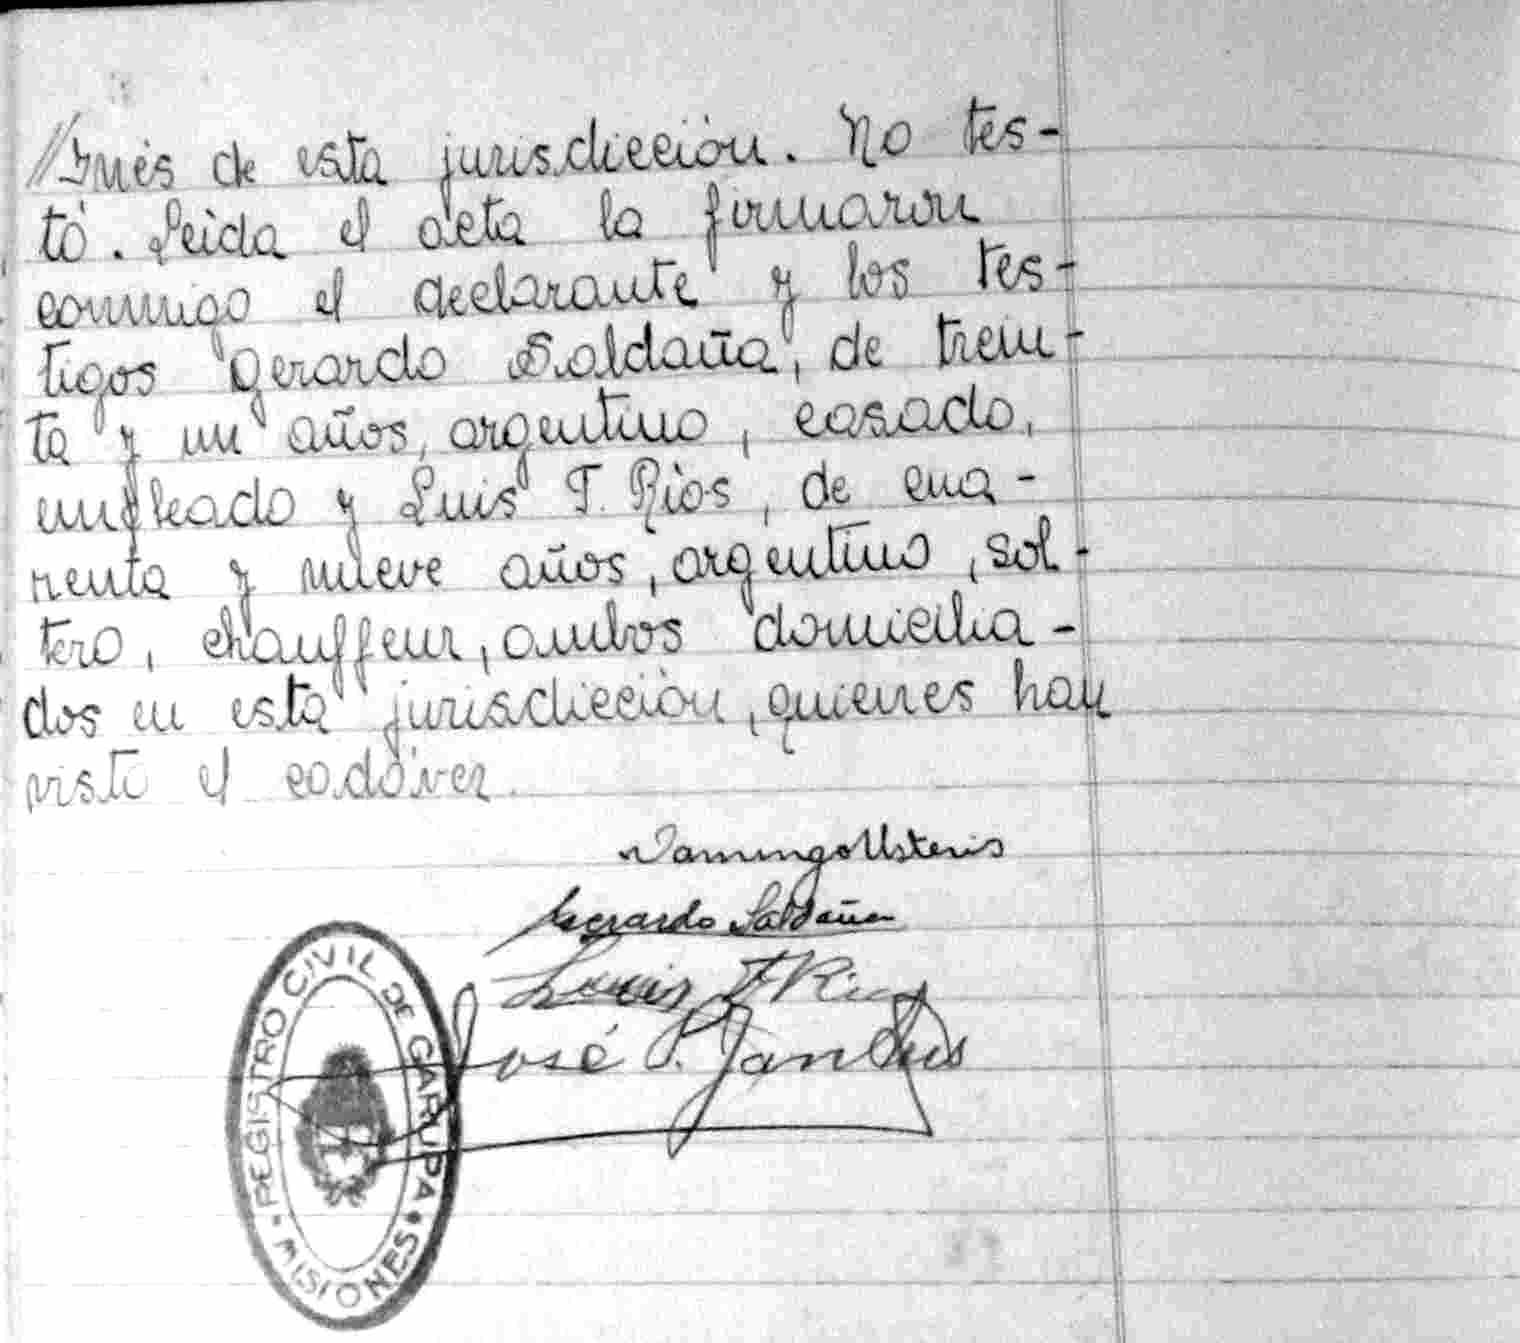 //Inés de esta jurisdicción. No tes-
tó. Leida el acta la firmaron
conmigo el declarante y los tes-
tigos Gerardo Saldaña, de trein-
ta y un años, argentino, casado,
empleado y Luis T. Rios, de cua-
renta y nueve años, argentino, sol-
tero, chauffeur, ambos domicilia-
dos en esta jurisdicción, quienes han
visto el cadáver.
Domingo Usteris
Gerardo Saldaña
Luis T Rios
José P.
REGISTRO CIVIL DE GARUPA
MISIONES